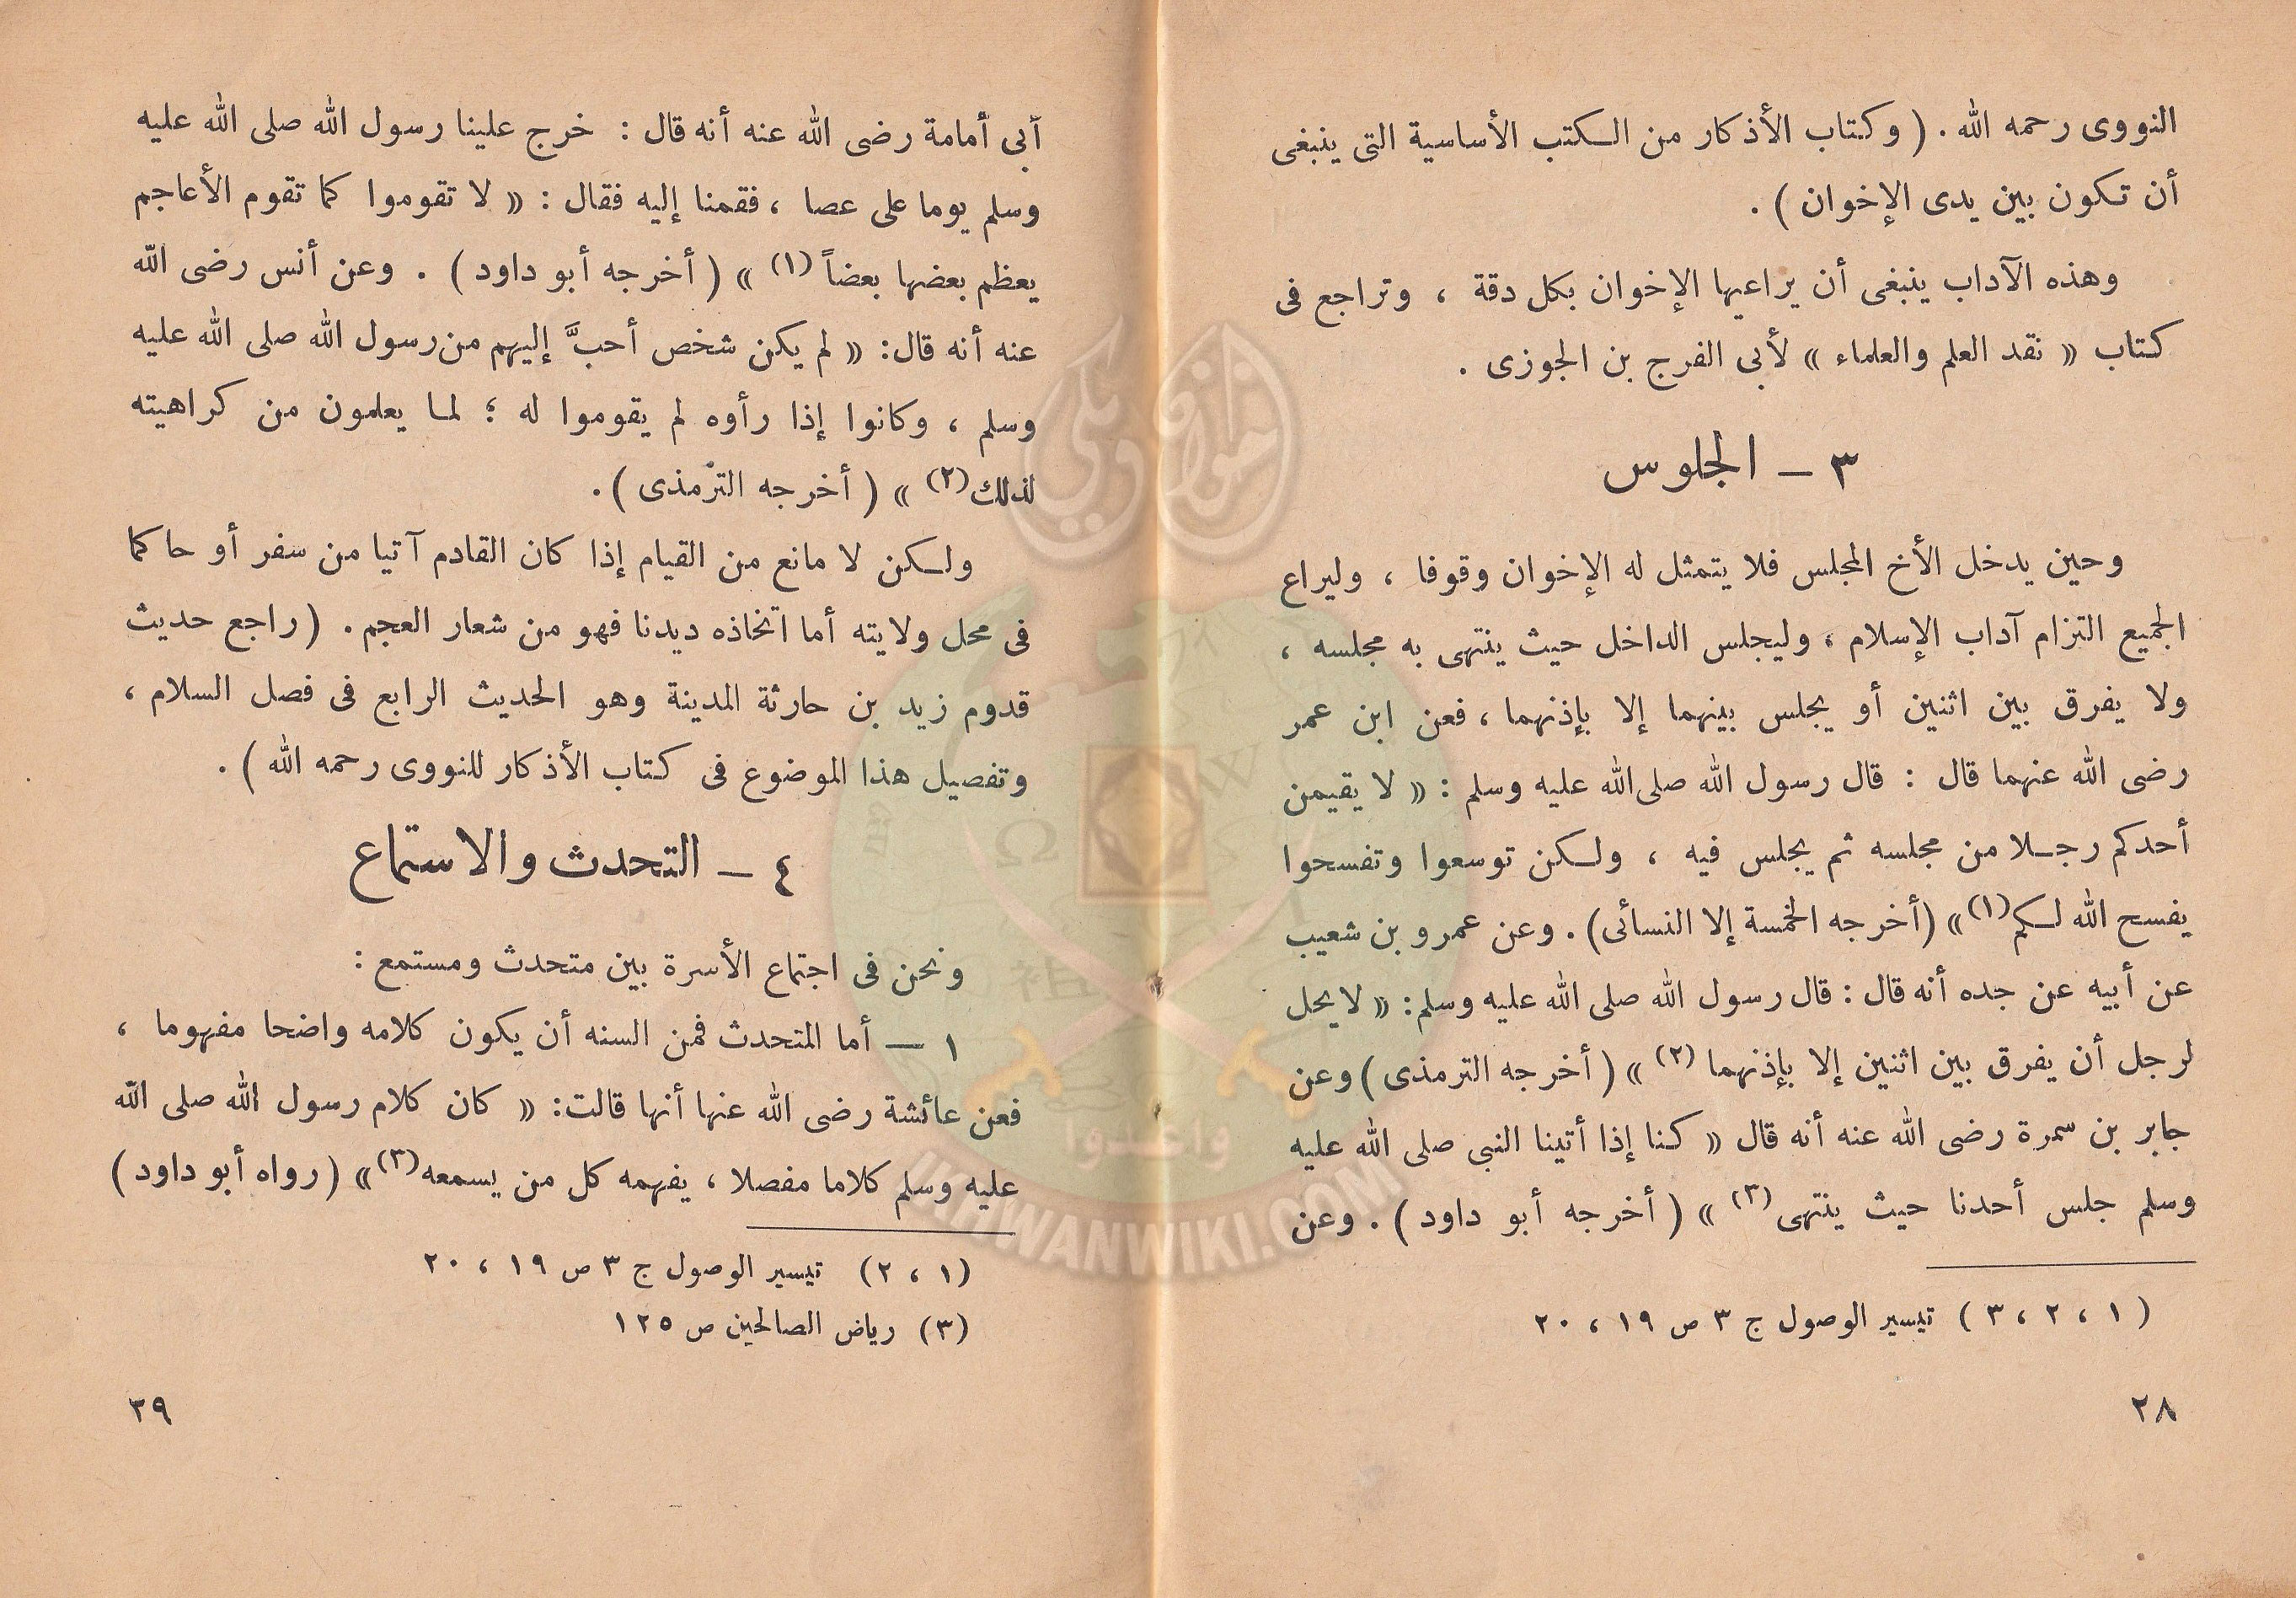 النووى رحمه الله . ( وكتاب الأذكار من الكتب الأساسية التى ينبغى
أن تكون بين يدى الإخوان ) .
وهذه الآداب ينبغى أن يراعيها الإخوان بكل دقة ، وتراجع فى
كتاب « نقد العلم والعلماء » لأبى الفرج بن الجوزى .
٣ – الجلوس
وحين يدخل الأخ المجلس فلا يتمثل له الإخوان وقوفا ، وليراع
الجميع التزام آداب الإسلام ، وليجلس الداخل حيث ينتهى به مجلسه ،
ولا يفرق بين اثنين أو يجلس بينهما إلا بإذنهما ، فعن ابن عمر
رضى الله عنهما قال : قال رسول الله صلى الله عليه وسلم : « لا يقيمن
أحدكم رجلا من مجلسه ثم يجلس فيه ، ولكن توسعوا وتفسحوا
يفسح الله لكم(١) » (أخرجه الخمسة إلا النسائى) . وعن عمرو بن شعيب
عن أبيه عن جده أنه قال : قال رسول الله صلى الله عليه وسلم : « لا يحل
لرجل أن يفرق بين اثنين إلا بإذنهما (٢) » ( أخرجه الترمذى ) وعن
جابر بن سمرة رضى الله عنه أنه قال « كنا إذا أتينا النبى صلى الله عليه
وسلم جلس أحدنا حيث ينتهى (٣) » ( أخرجه أبو داود ) . وعن
( ١ ، ٢ ، ٣ ) تيسير الوصول ج ٣ ص ١٩ ، ٢٠
٢٨
أبى أمامة رضى الله عنه أنه قال : خرج علينا رسول الله صلى الله عليه
وسلم يوما على عصا ، فقمنا إليه فقال : « لا تقوموا كما تقوم الأعاجم
يعظم بعضها بعضاً (١) » ( أخرجه أبو داود ) . وعن أنس رضى الله
عنه أنه قال : « لم يكن شخص أحبَّ إليهم من رسول الله صلى الله عليه
وسلم ، وكانوا إذا رأوه لم يقوموا له ؛ لما يعلمون من كراهيته
لذلك (٢) » ( أخرجه الترمذى ) .
ولكن لا مانع من القيام إذا كان القادم آتيا من سفر أو حاكما
فى محل ولايته أما اتخاذه ديدنا فهو من شعار العجم . ( راجع حديث
قدوم زيد بن حارثة المدينة وهو الحديث الرابع فى فصل السلام ،
وتفصيل هذا الموضوع فى كتاب الأذكار للنووى رحمه الله ) .
٤ – التحدث والاستماع
ونحن فى اجتماع الأسرة بين متحدث ومستمع :
١ – أما المتحدث فمن السنه أن يكون كلامه واضحا مفهوما ،
فعن عائشة رضى الله عنها أنها قالت : « كان كلام رسول الله صلى الله
عليه وسلم كلاما مفصلا ، يفهمه كل من يسمعه (٣) » ( رواه أبو داود )
(١ ، ٢) تيسير الوصول ج ٣ ص ١٩ ، ٢٠
(٣) رياض الصالحين ص ١٢٥
٣٩
إخوان ويكي
وأعدوا
IKHWANWIKI.COM